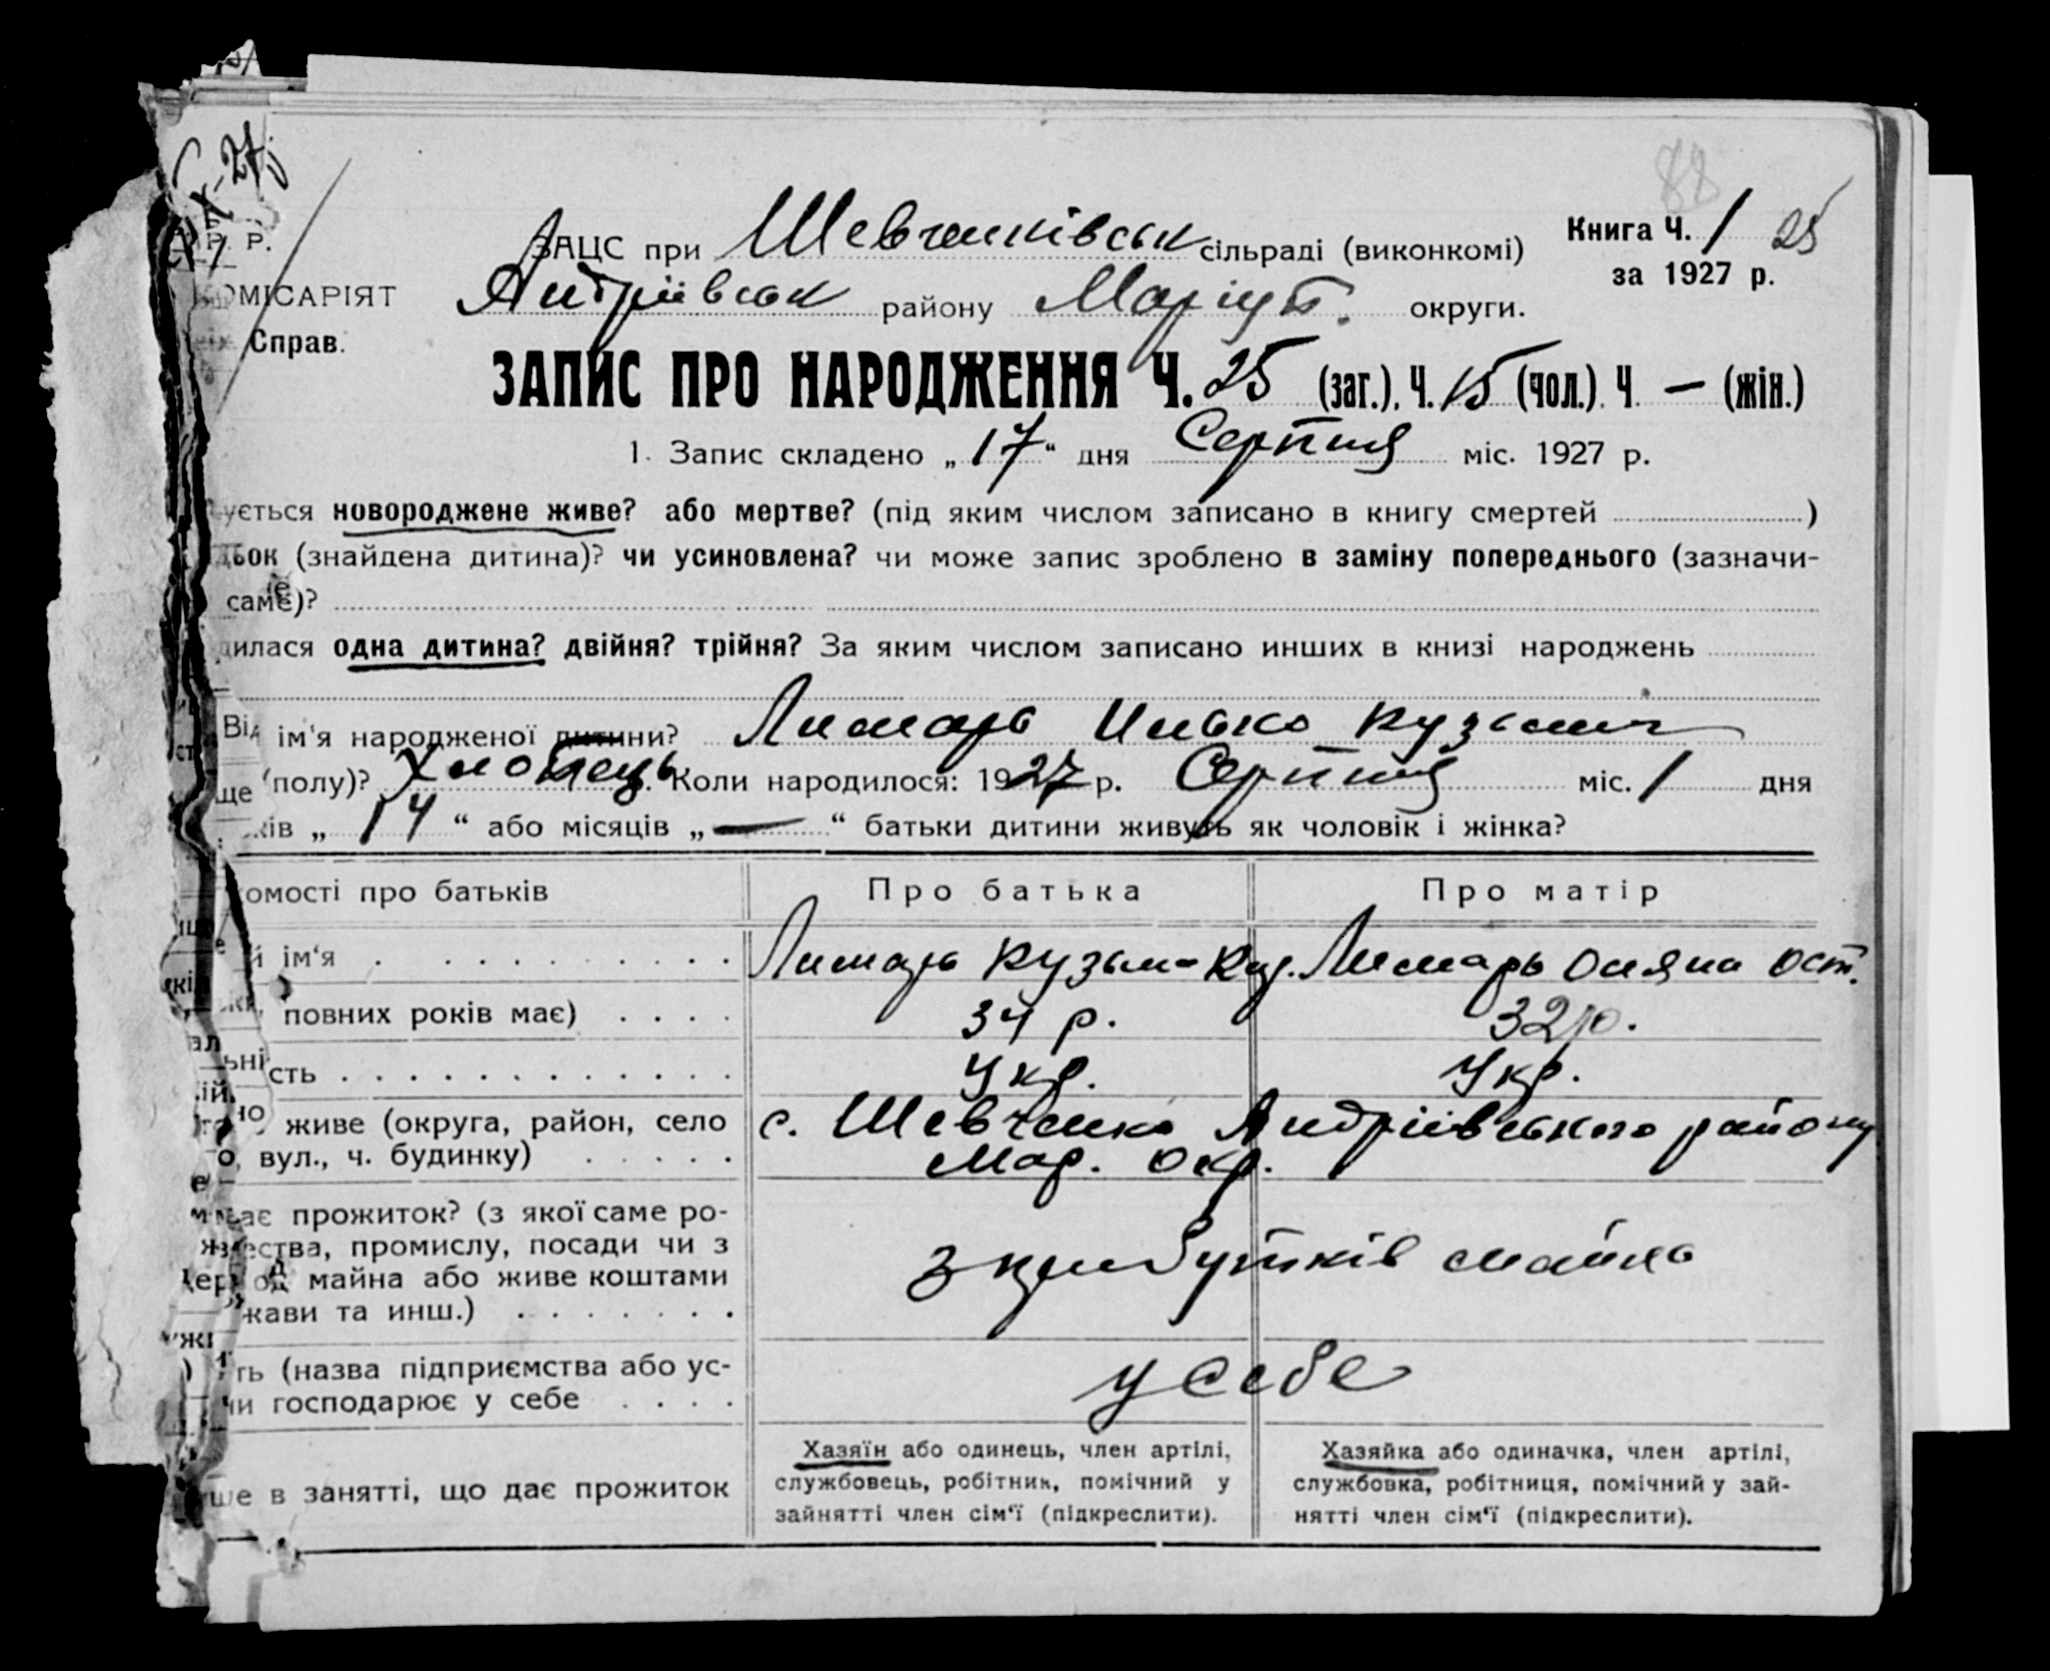 88
Р. Р.
ЗАЦС при Шевченківськ сільраді (виконкомі) Книга Ч. 1 25
за 1927 р.
КОМІСАРІЯТ Андріївськ району Маріуп. округи.
Справ.
ЗАПИС ПРО НАРОДЖЕННЯ Ч. 25 (заг.). Ч. 15 (чол.). Ч. — (жін.)
1. Запис складено „17“ дня Серпня міс. 1927 р.
ується новороджене живе? або мертве? (під яким числом записано в книгу смертей )
ьок (знайдена дитина)? чи усиновлена? чи може запис зроблено в заміну попереднього (зазначи-
саме)?
дилася одна дитина? двійня? трійня? За яким числом записано инших в книзі народжень
ім'я народженої дитини? Лимарь Илько Кузьмич
(полу)? Хлопець. Коли народилося: 1927 р. Серпня міс. 1 дня
ків „14“ або місяців „—“ батьки дитини живуть як чоловік і жінка?
омості про батьків Про батька Про матір
й ім'я Лимарь Кузьма Лимарь Оляна Ост.
повних років має) 34 р. 32 р.
сть Укр. Укр.
живе (округа, район, село с. Шевченко Андріївського району
вул., ч. будинку) Мар. Окр.
ає прожиток? (з якої саме ро-
ства, промислу, посади чи з з прибутків майна
майна або живе коштами
жави та инш.)
ть (назва підприємства або ус- у себе
чи господарює у себе
Хазяїн або одинець, член артілі, Хазяйка або одиначка, член артілі,
ше в занятті, що дає прожиток службовець, робітник, помічний у службовка, робітниця, помічний у зай-
зайнятті член сім'ї (підкреслити). нятті член сім'ї (підкреслити).